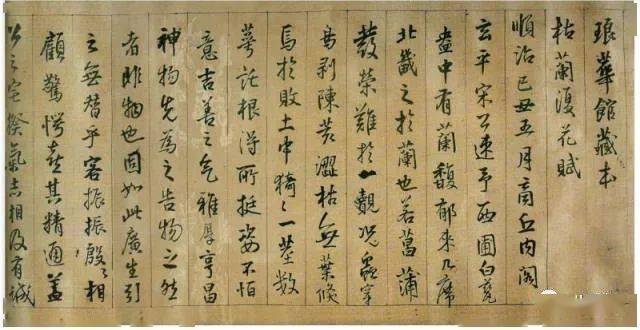 琅華館藏本
枯蘭復花賦
順治己丑五月商丘內閣
玄平宋公速予西圃白瓷
盎中有蘭馥郁來几席
北畿之於蘭也若菖蒲
發榮難於一覯況蟲穿
鳥剝陳苦澀枯無葉倏
焉於敗土中猗猗一莖數
萼託根得所挺姿不怕
意吉善之氣雅厚亨昌
神物先為之告物之然
者昨物也固如此廣生引
之無替乎客振振殷殷相
顧驚愕喜其精通蓋
公之宅揆氣志相及有誠